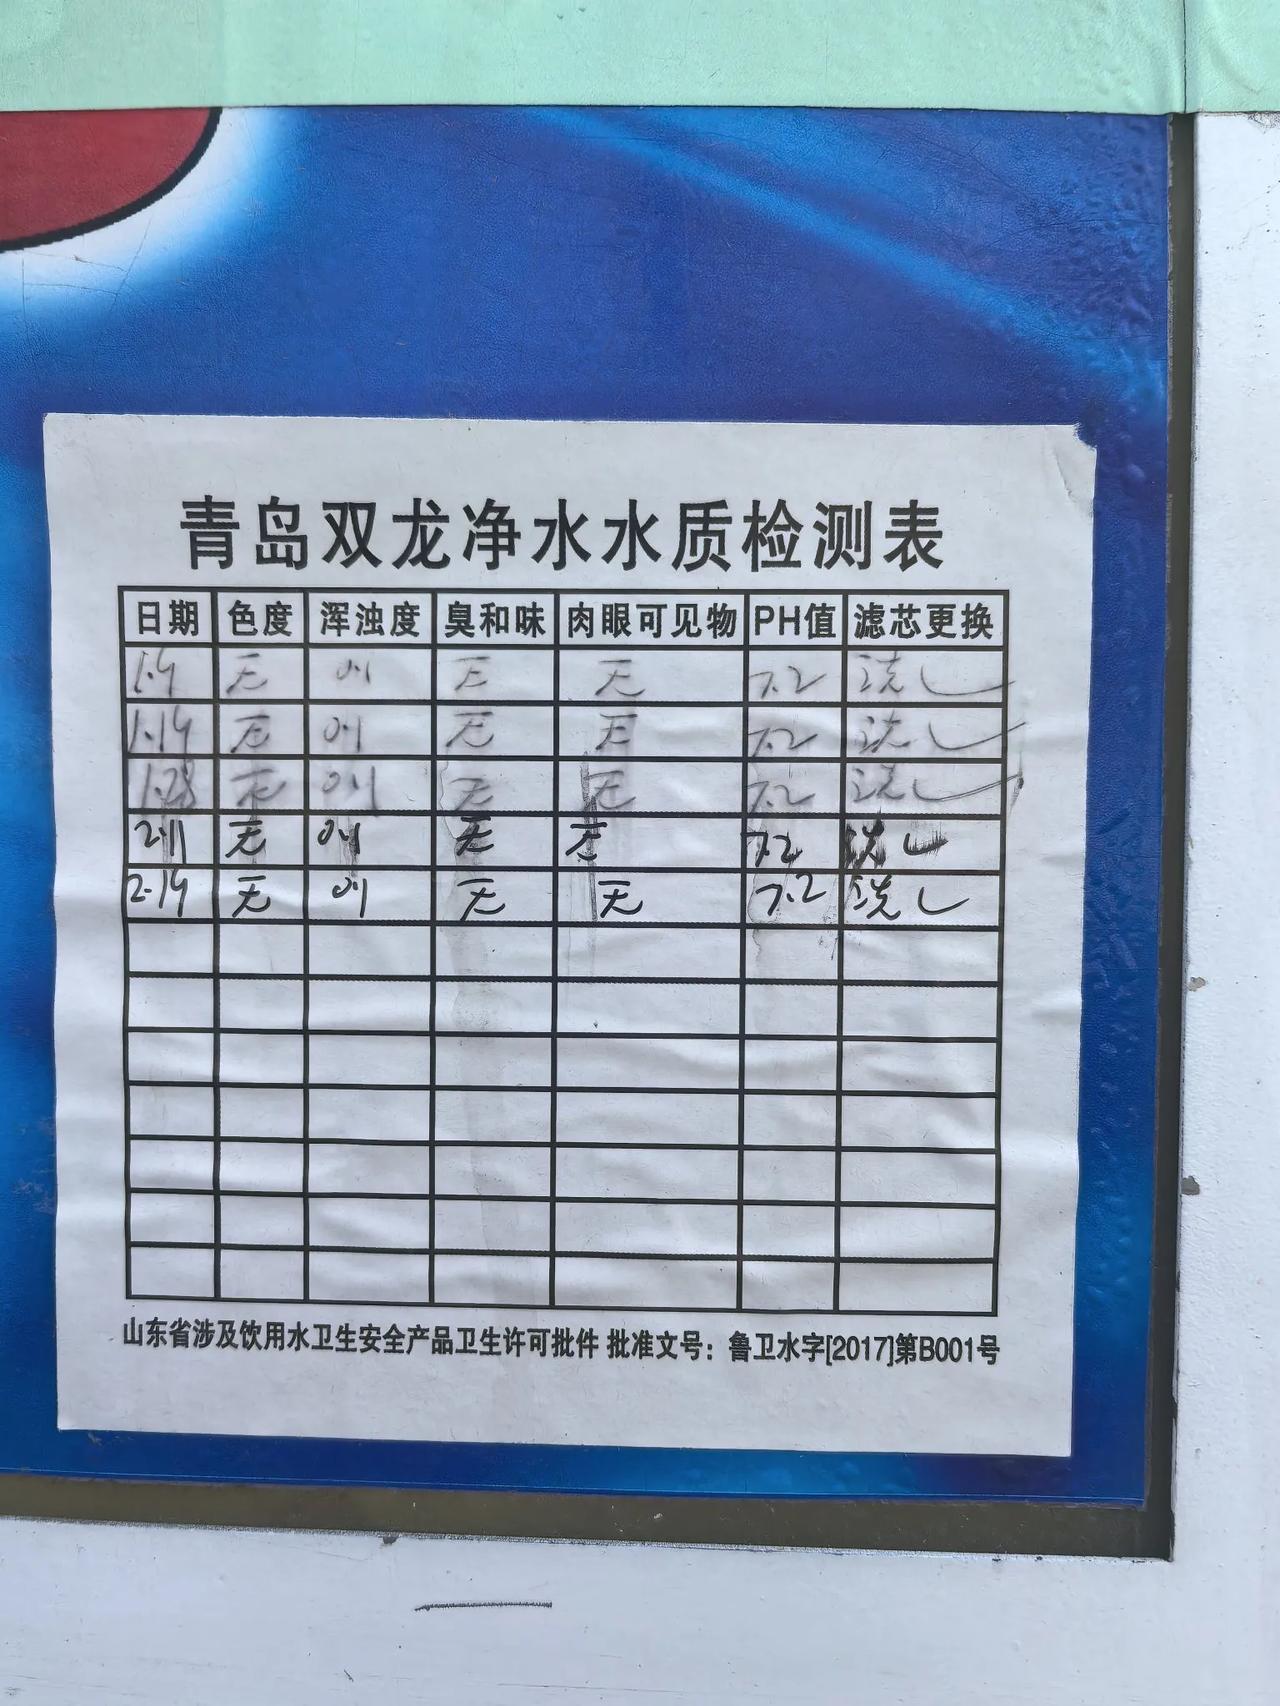 青岛双龙净水水质检测表
日期 色度 浑浊度 臭和味 肉眼可见物 PH值 滤芯更换
1.9 无 0.1 无 无 7.2 洗
1.19 无 0.1 无 无 7.2 洗
1.28 无 0.1 无 无 7.2 洗
2.11 无 0.1 无 无 7.2 洗
2.19 无 0.1 无 无 7.2 洗
山东省涉及饮用水卫生安全产品卫生许可批件 批准文号：鲁卫水字[2017]第B001号